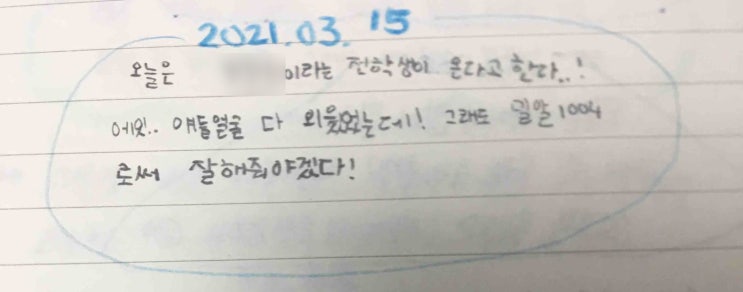 2021.03.15
오늘은 이라는 전학생이 온다고 한다..!
에잇.. 얘들얼굴 다 외웠었는데! 그래도 밀알1004
로써 잘해줘야겠다!